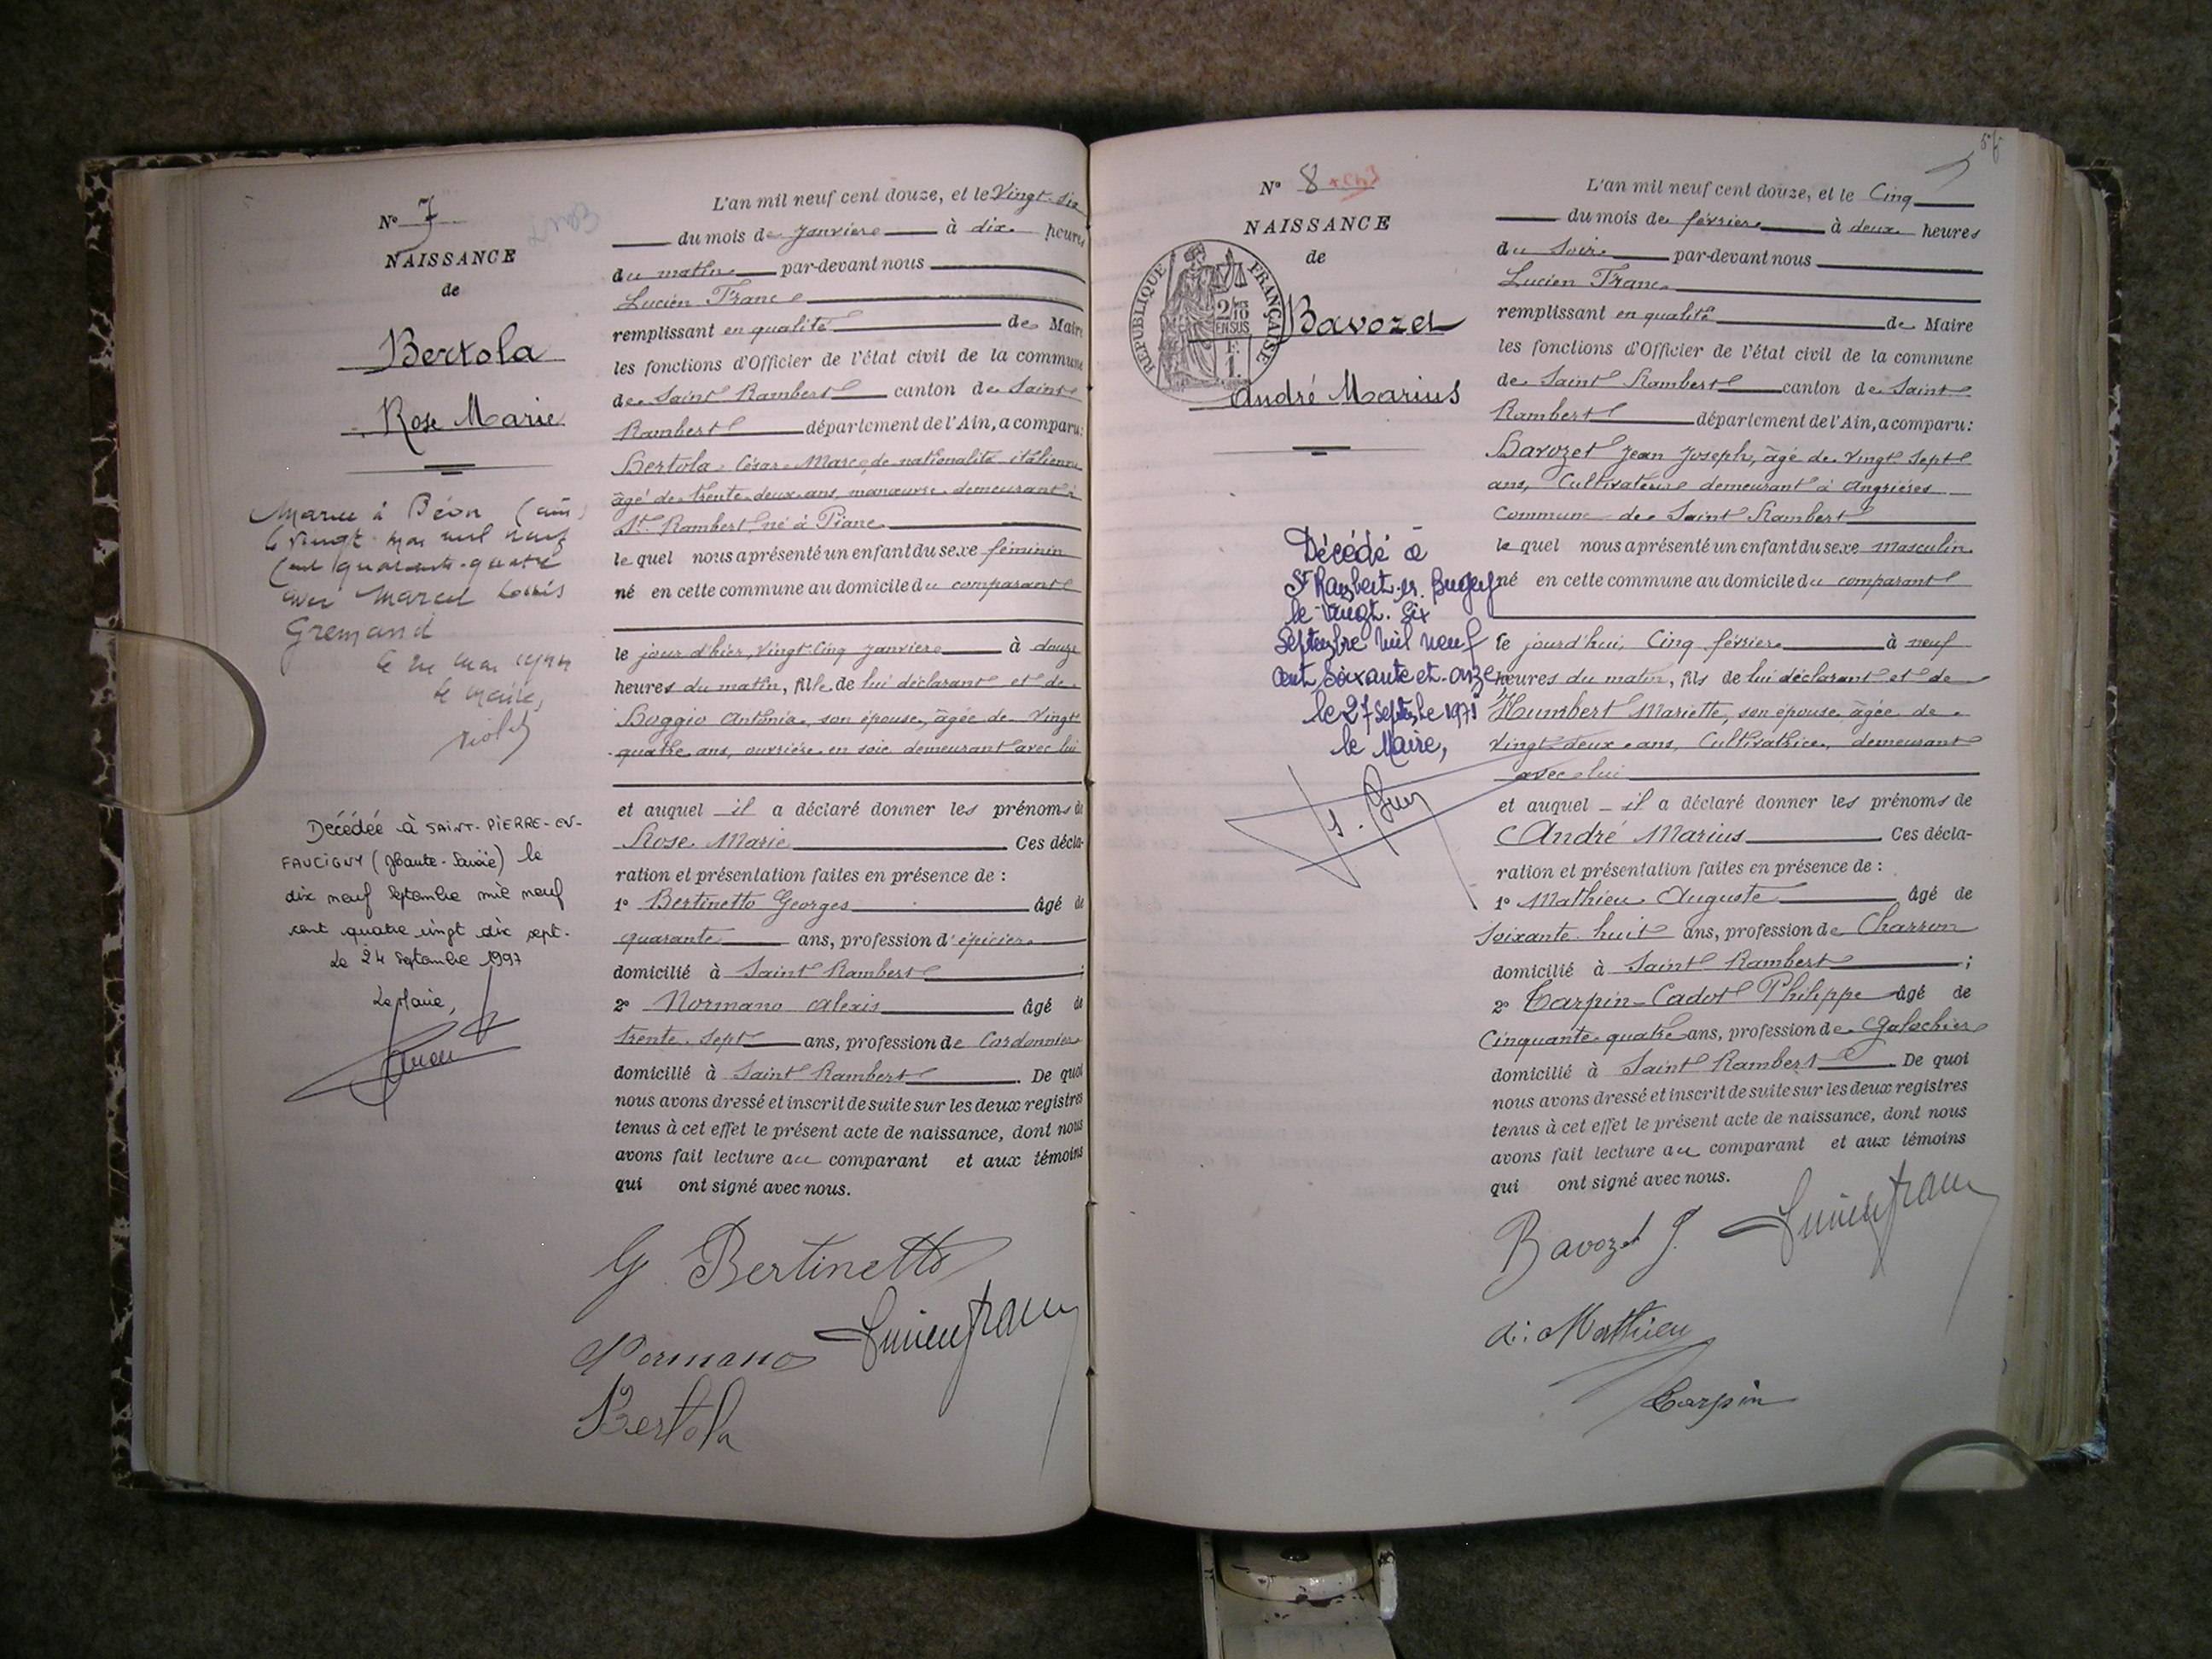 N° 7
NAISSANCE
de
Bertola
Rose Marie
Mariée à Béon (Ain)
le vingt mai mil neuf
cent quarante-quatre
avec Marcel Louis
Gremand
le mai 1944
le Maire,
Décédée à SAINT-PIERRE-EN-
FAUCIGNY (Haute-Savoie) le
dix neuf septembre mil neuf
cent quatre vingt dix sept.
Le 24 septembre 1997
Le Maire,
L'an mil neuf cent douze, et le Vingt-six
du mois de Janvier à dix heures
du matin par-devant nous
Lucien Franc
remplissant en qualité de Maire
les fonctions d'Officier de l'état civil de la commune
de Saint Rambert canton de Saint
Rambert département de l'Ain, a comparu:
Bertola César Marc, de nationalité italienne
âgé de trente-deux ans, manœuvre demeurant à
St Rambert, né à Piane
le quel nous a présenté un enfant du sexe féminin
né en cette commune au domicile du comparant
le jour d'hier, vingt-cinq janvier à douze
heures du matin, fille de lui déclarant et de
Boggio Antonia, son épouse, âgée de vingt
quatre ans, ouvrière en soie demeurant avec lui
et auquel il a déclaré donner les prénoms de
Rose Marie Ces décla-
ration et présentation faites en présence de :
1° Bertinetto Georges âgé de
quarante ans, profession d'épicier
domicilié à Saint Rambert ;
2° Normano Alexis âgé de
trente-sept ans, profession de Cordonnier
domicilié à Saint Rambert. De quoi
nous avons dressé et inscrit de suite sur les deux registres
tenus à cet effet le présent acte de naissance, dont nous
avons fait lecture au comparant et aux témoins
qui ont signé avec nous.
G. Bertinetto
Normano Lucien Franc
Bertola
N° 8
NAISSANCE
de
RÉPUBLIQUE FRANÇAISE
2/10
EN SUS
1 F.
Bavozet
André Marius
Décédé à
St Rambert-en-Bugey
le vingt-six
septembre mil neuf
cent soixante et-onze
le 27 septembre 1971
le Maire,
L'an mil neuf cent douze, et le Cinq
du mois de février à deux heures
du soir par-devant nous
Lucien Franc
remplissant en qualité de Maire
les fonctions d'Officier de l'état civil de la commune
de Saint Rambert canton de Saint
Rambert département de l'Ain, a comparu:
Bavozet Jean Joseph, âgé de vingt-sept
ans, Cultivateur demeurant à Angrières
Commune de Saint Rambert
le quel nous a présenté un enfant du sexe masculin
né en cette commune au domicile du comparant
le jourd'hui, Cinq février à neuf
heures du matin, fils de lui déclarant et de
Humbert Mariette, son épouse âgée de
vingt-deux ans, Cultivatrice, demeurant
avec lui
et auquel il a déclaré donner les prénoms de
André Marius Ces décla-
ration et présentation faites en présence de :
1° Mathieu Auguste âgé de
soixante-huit ans, profession de Charron
domicilié à Saint Rambert ;
2° Carpin-Cadot Philippe âgé de
Cinquante-quatre ans, profession de Galochier
domicilié à Saint Rambert. De quoi
nous avons dressé et inscrit de suite sur les deux registres
tenus à cet effet le présent acte de naissance, dont nous
avons fait lecture au comparant et aux témoins
qui ont signé avec nous.
Bavozet J. Lucien Franc
a: Mathieu
Carpin